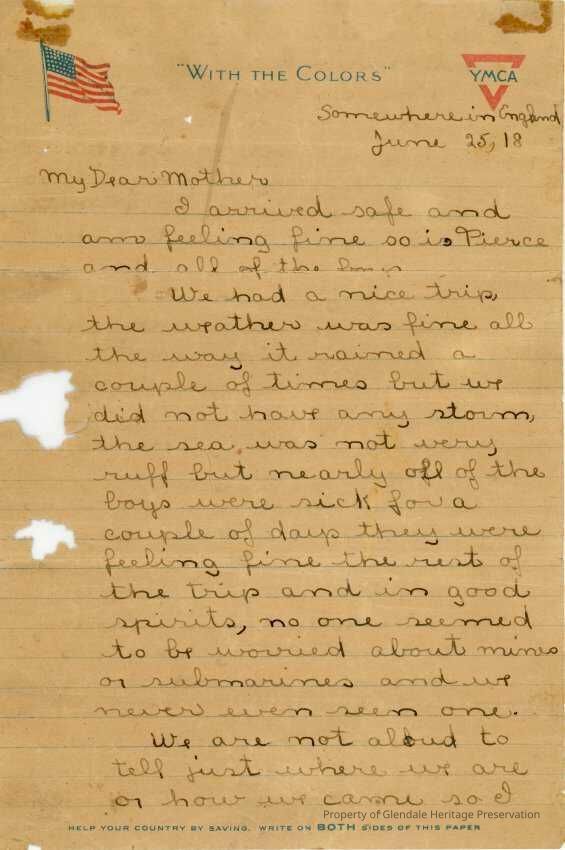 "WITH THE COLORS"
YMCA
Somewhere in England
June 25, 18
My Dear Mother
I arrived safe and
am feeling fine so is Pierce
and all of the boys
We had a nice trip,
the weather was fine all
the way it rained a
couple of times but we
did not have any storm,
the sea was not very
ruff but nearly all of the
boys were sick for a
couple of days they were
feeling fine the rest of
the trip and in good
spirits, no one seemed
to be worried about mines
or submarines and we
never even seen one.
We are not aloud to
tell just where we are
or how we came so I
Property of Glendale Heritage Preservation
HELP YOUR COUNTRY BY SAVING. WRITE ON BOTH SIDES OF THIS PAPER